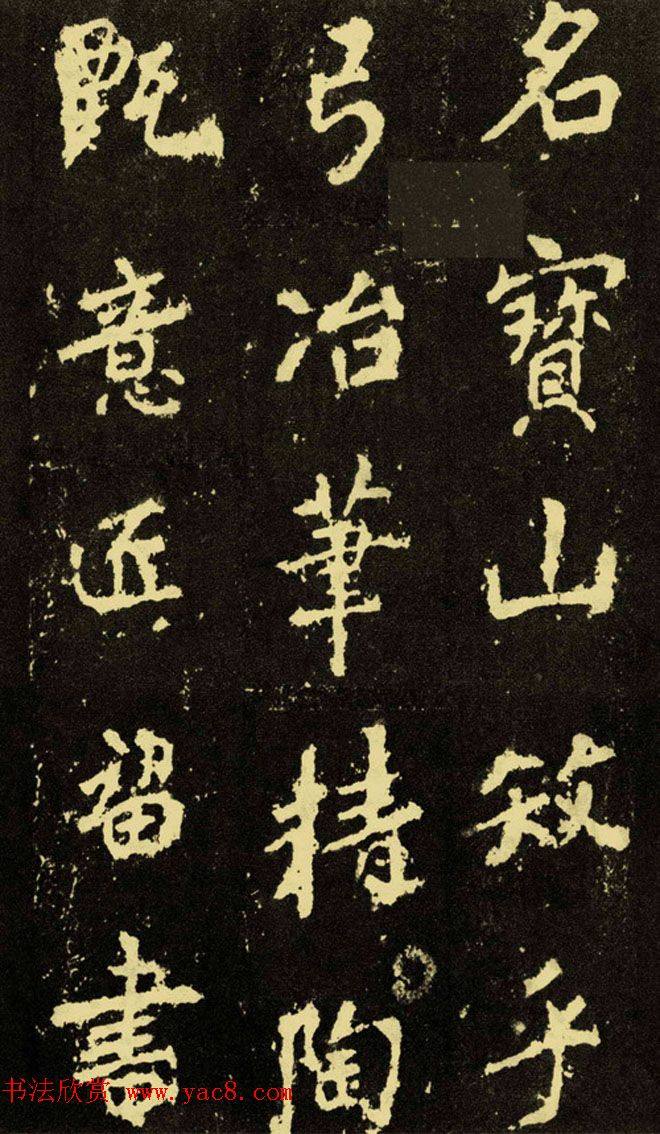 名寶山效乎
弓冶筆精陶
甄意近留書
书法欣赏 www.yac8.com